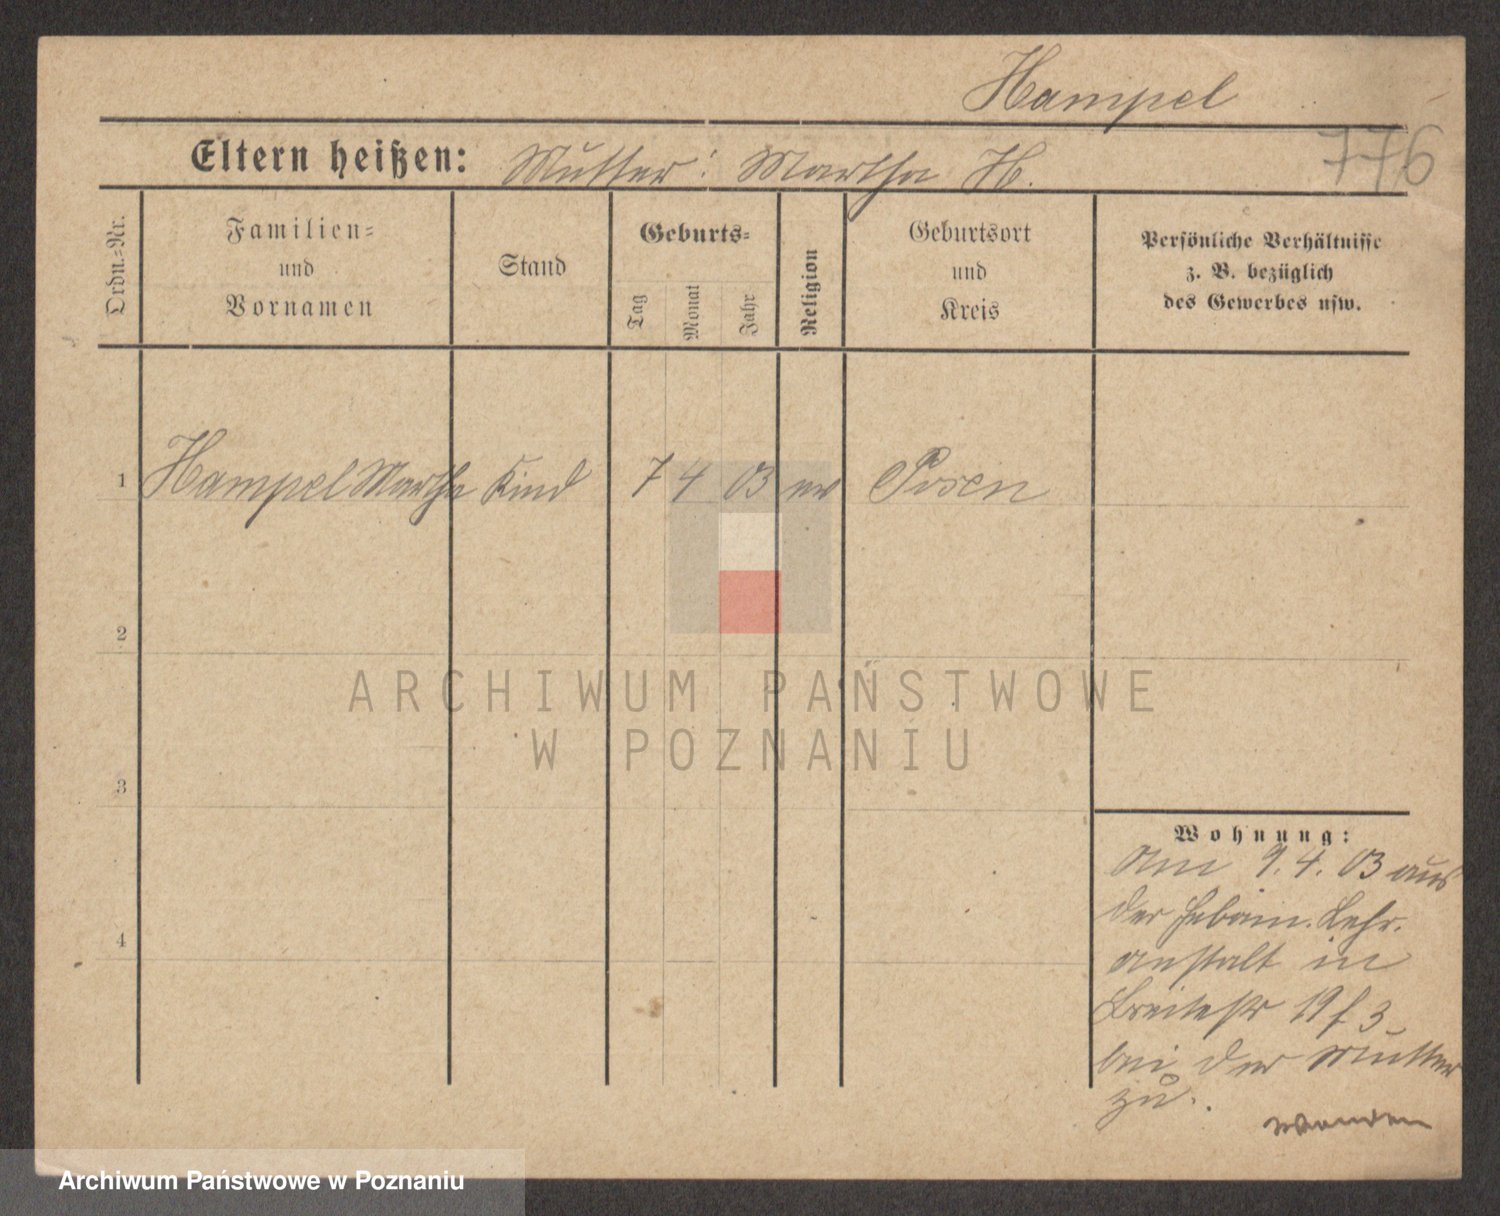 Hampel
776
Eltern heißen: Mutter: Martha H.
Ordn.-Nr.
Familien=
und
Vornamen
Stand
Geburts=
Tag
Monat
Jahr
Religion
Geburtsort
und
Kreis
Persönliche Verhältnisse
z. B. bezüglich
des Gewerbes usw.
1 Hampel Martha Kind 7 4 03 ev Posen
2
3
4
Wohnung:
Am 9.4.03 aus
der Hebam. Lehr.
anstalt in
Breitestr 19 f 3
bei der Mutter
zu.
ARCHIWUM PAŃSTWOWE
W POZNANIU
Archiwum Państwowe w Poznaniu